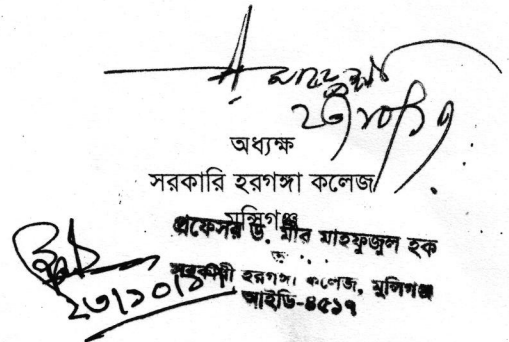 ২৩/১০/১৭
অধ্যক্ষ
সরকারি হরগঙ্গা কলেজ
মুন্সিগঞ্জ
প্রফেসর ড. মীর মাহফুজুল হক
সরকারী হরগঙ্গা কলেজ, মুন্সিগঞ্জ
আইডি-৪৫১৭
২৩/১০/১৭